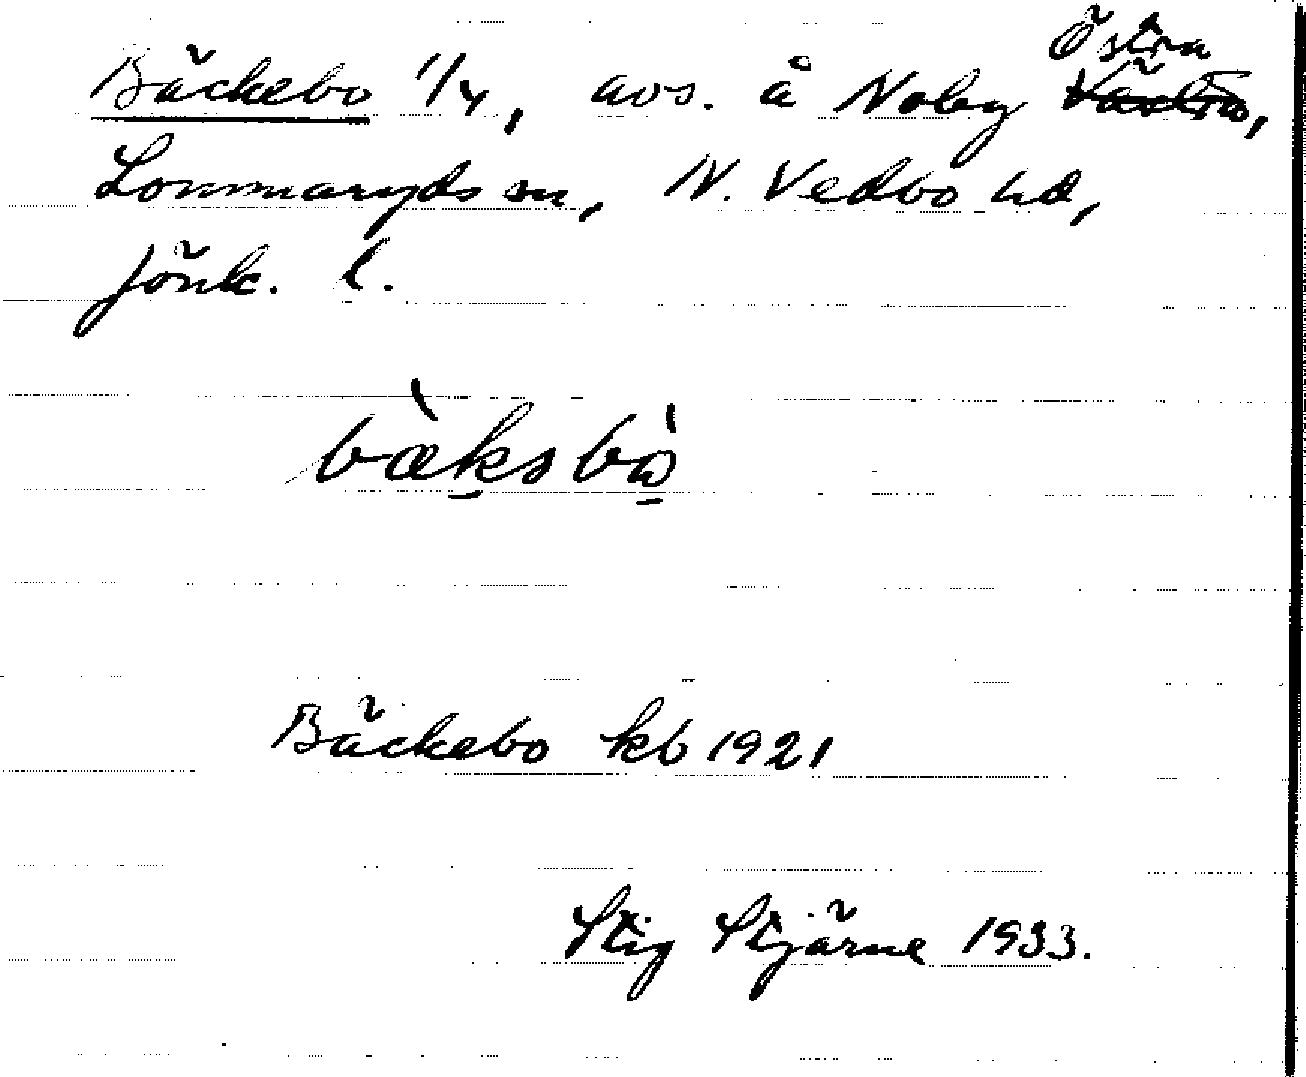 Bäckebo 1/4, avs. å Noby Östra ~~Västra~~,
Lommaryds sn, N. Vedbo hd,
Jönk. l.
bæ̀ksbò
Bäckebo kb 1921
Stig Stjärne 1933.